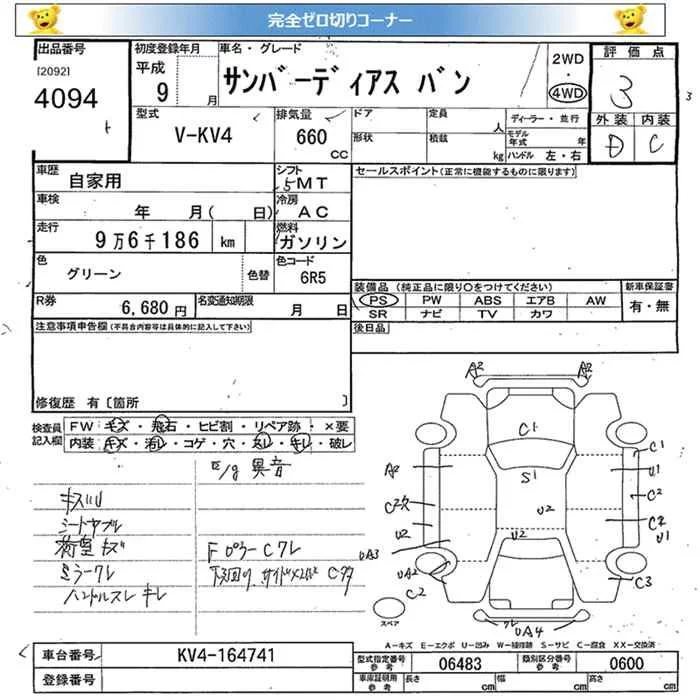 完全ゼロ切りコーナー
出品番号
[2092]
4094
初度登録年月
平成
9 月
車名・グレード
サンバーディアス バン
2WD
・
4WD
評価点
3
3
外装 内装
D C
型式
V-KV4
排気量
660
CC
ドア
形状
定員
人
積載
kg
ディーラー・並行
モデル
年式 年
ハンドル 左・右
車歴
自家用
シフト
5MT
車検
年 月( 日)
冷房
AC
走行
9万6千186 km
燃料
ガソリン
色
グリーン
色替
色コード
6R5
R券
6,680円
名変通知期限
月 日
セールスポイント(正常に機能するものに限ります)
装備品(純正品に限り○をつけてください)
PS PW ABS エアB AW
SR ナビ TV カワ
新車保証書
有・無
後日品
注意事項申告欄(不具合内容等は具体的に記入して下さい)
修復歴 有〔箇所 〕
検査員
記入欄
FW キズ・飛石・ヒビ割・リペア跡・×要
内装 キズ・汚レ・コゲ・穴・スレ・キレ・破レ
E/g 異音
キズU
シートヤブレ
荷室キズ
ミラークレ
ハンドルスレ キレ
Fロアー Cクレ
下回り、サイドメンバー Cクサ
A2 A2
C1
S1
U2
U2
A2
C2穴
U2
UA3
UA2
C2
C1
U1
C2
C2
U1
C3
クレ
UA4
スペア
A－キズ E－エクボ U－凹み W－補修跡 S－サビ C－腐食 XX－交換済
車台番号
KV4-164741
登録番号
型式指定番号
参考
06483
類別区分番号
参考
0600
車庫証明用
参考
長さ
cm
幅
cm
高さ
cm